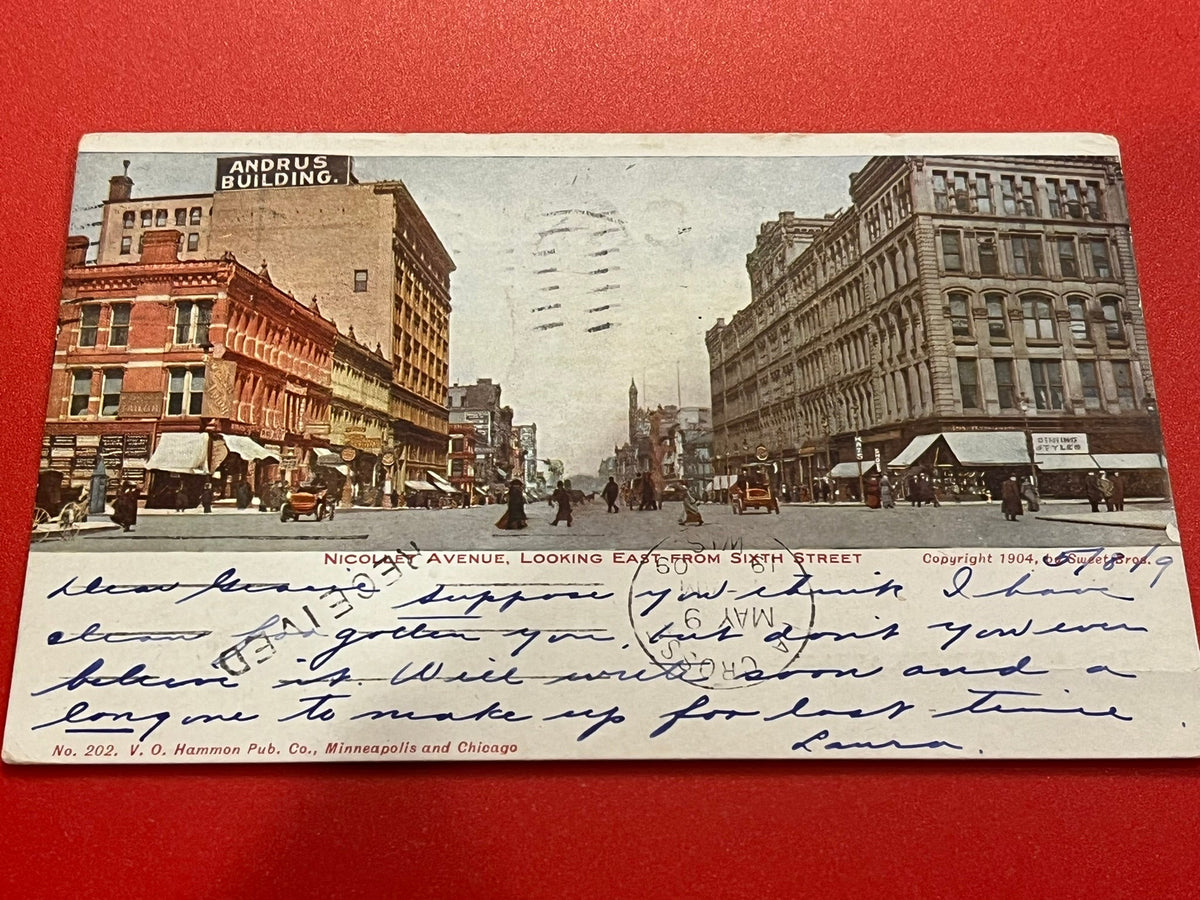 ANDRUS
BUILDING.
DINING
STYLES
NICOLLET AVENUE, LOOKING EAST FROM SIXTH STREET
Copyright 1904, by Sweet Bros.
5/8/9
Dear George Suppose you think I have
clean forgotten you, but don't you ever
believe it. Will write soon and a
long one to make up for last time
Laura.
RECEIVED
LA CROSSE
MAY 9
09
WIS
No. 202. V. O. Hammon Pub. Co., Minneapolis and Chicago